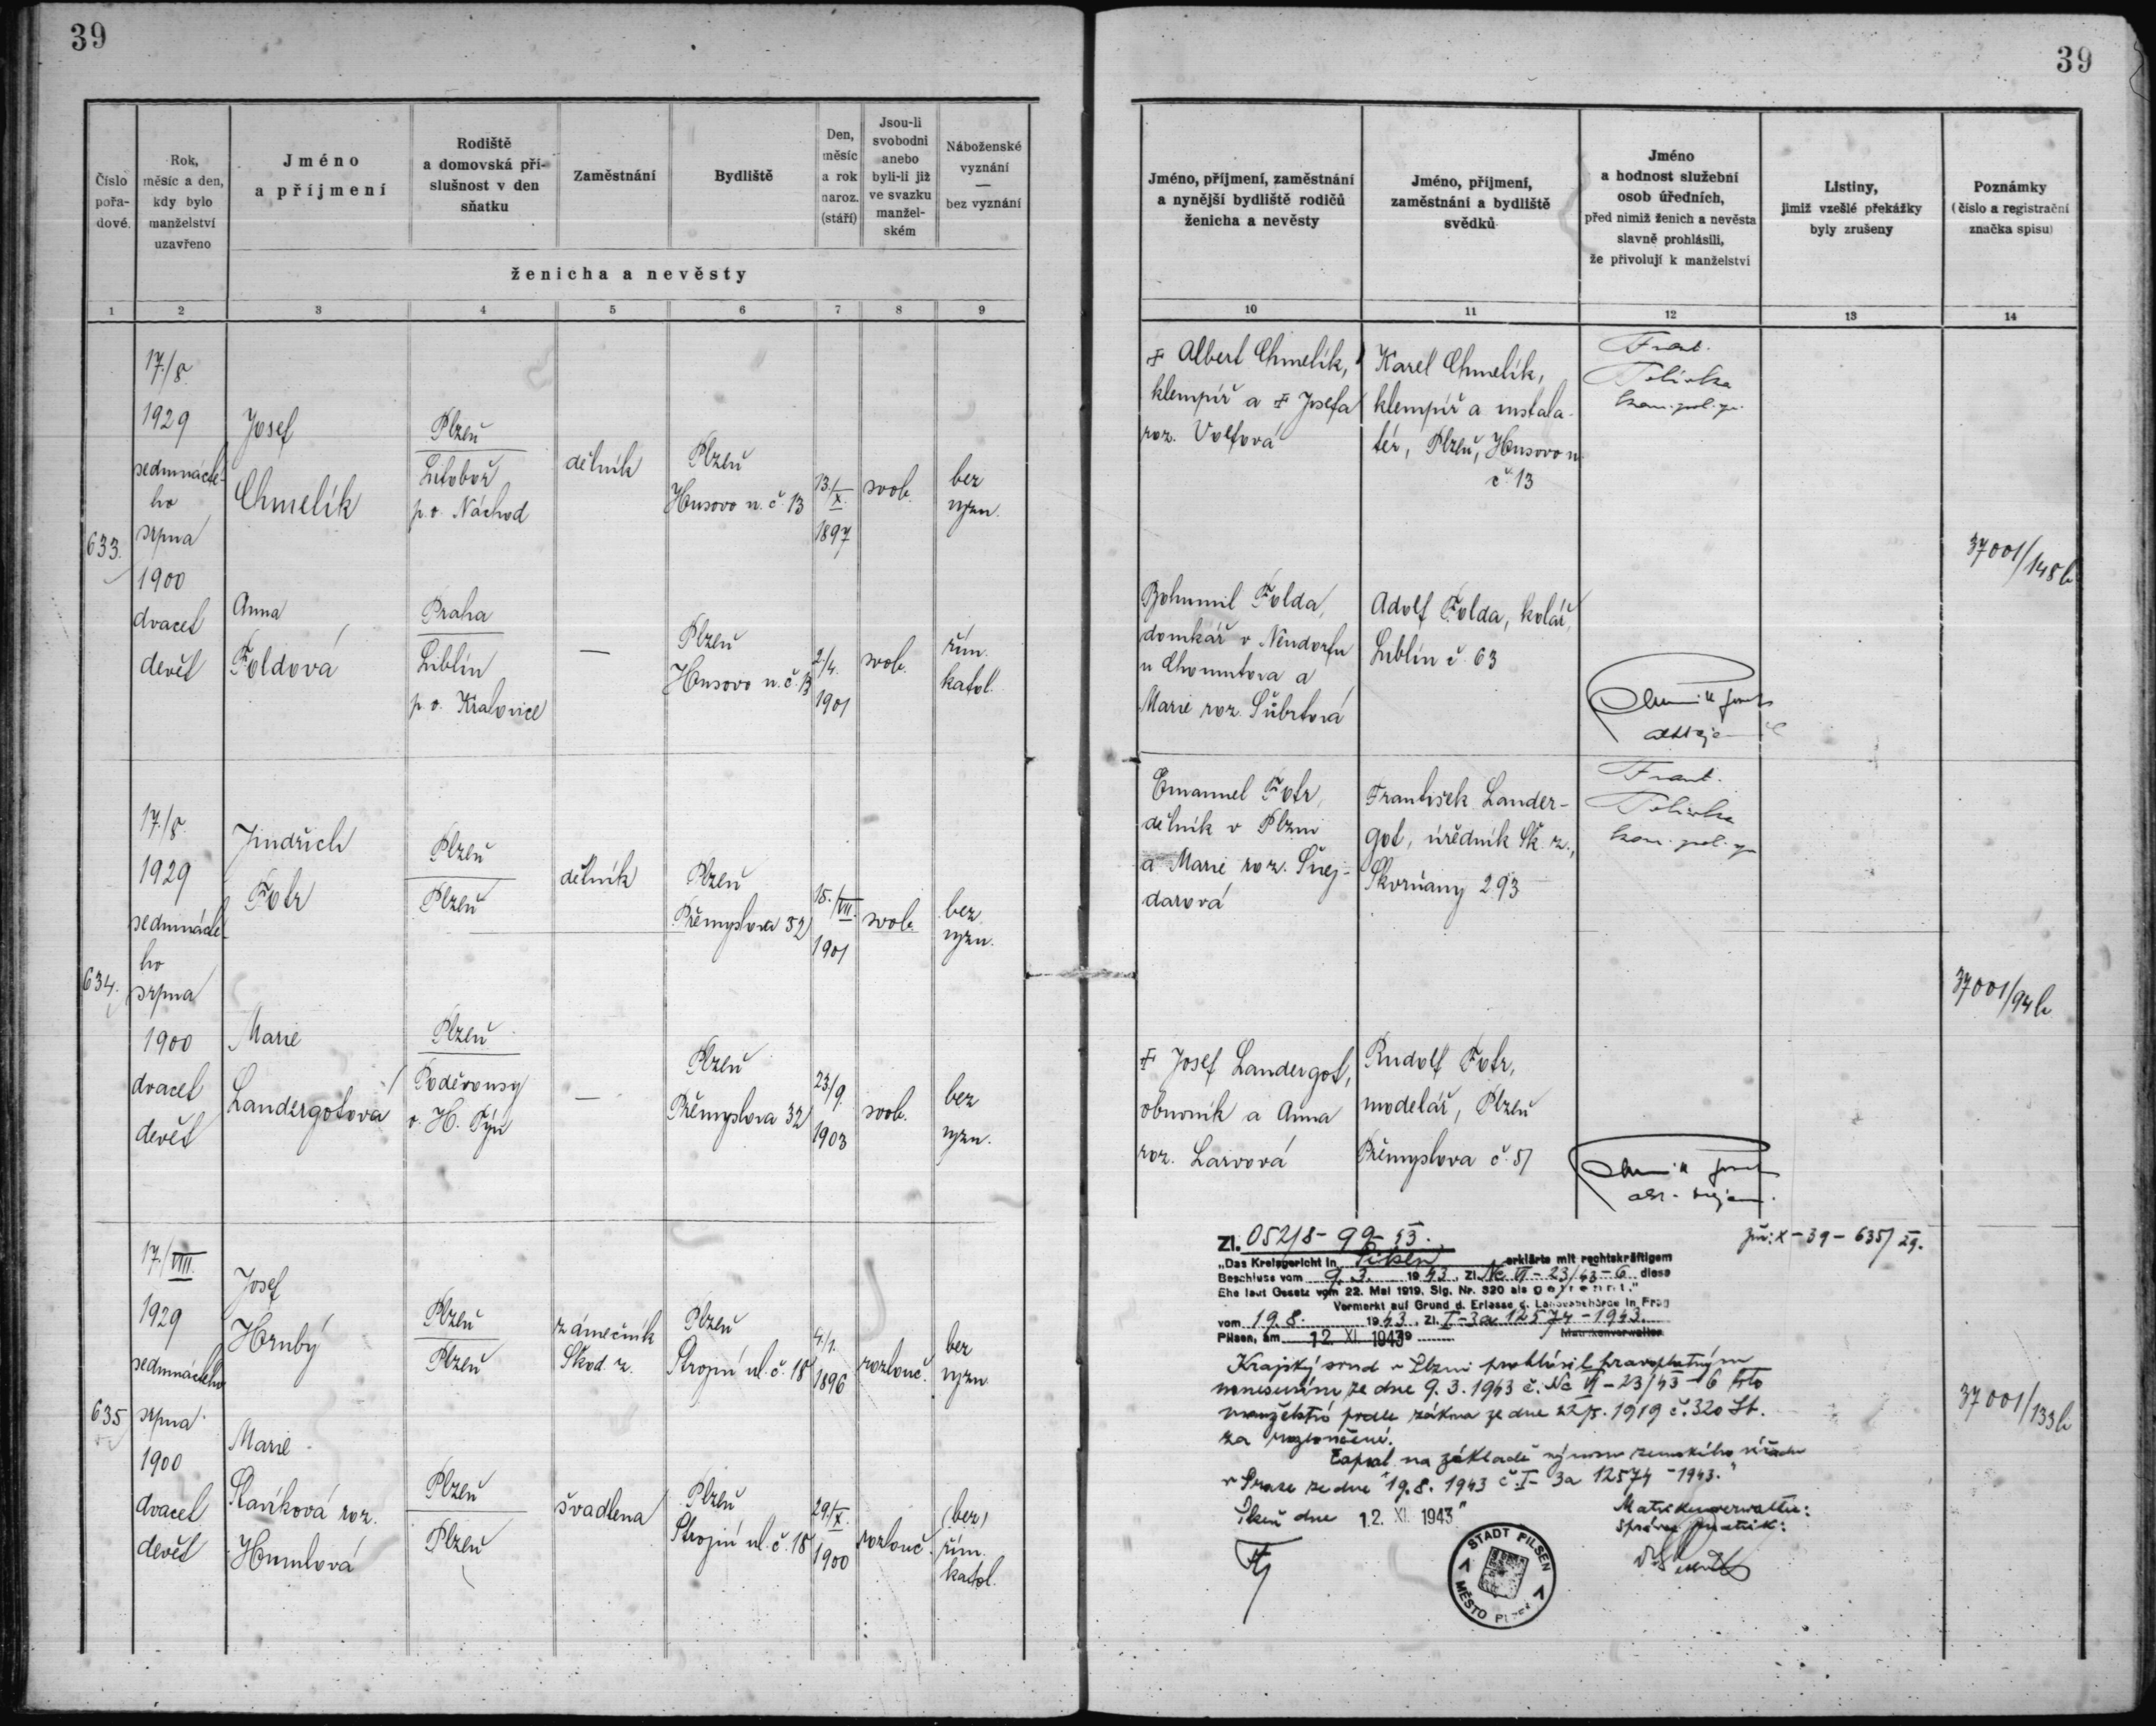 39
39
Číslo
pořa-
dové
Rok,
měsíc a den,
kdy bylo
manželství
uzavřeno
Jméno
a příjmení
Rodiště
a domovská pří-
slušnost v den
sňatku
Zaměstnání
Bydliště
Den,
měsíc
a rok
naroz.
(stáří)
Jsou-li
svobodni
anebo
byli-li již
ve svazku
manžel-
ském
Náboženské
vyznání
—
bez vyznání
ženicha a nevěsty
1 2 3 4 5 6 7 8 9
Jméno, příjmení, zaměstnání
a nynější bydliště rodičů
ženicha a nevěsty
Jméno, příjmení,
zaměstnání a bydliště
svědků
Jméno
a hodnost služební
osob úředních,
před nimiž ženich a nevěsta
slavně prohlásili,
že přivolují k manželství
Listiny,
jimiž vzešlé překážky
byly zrušeny
Poznámky
(číslo a registrační
značka spisu)
10 11 12 13 14
633.
17./8.
1929
sedmnácté-
ho
srpna
1900
dvacet
devět
Josef
Chmelík
Plzeň
Litoboř
p. o. Náchod
dělník
Plzeň
Husovo n. č 13
13./X.
1897
svob.
bez
vyzn.
Anna
Foldová
Praha
Liblín
p. o. Kralovice
—
Plzeň
Husovo n. č. 13
2./4.
1901
svob.
řím.
katol.
Albert Chmelík,
klempíř a Josefa
roz. Volfová
Karel Chmelík,
klempíř a instala-
tér, Plzeň, Husovo n
č 13
Frant.
37001/148b
Bohumil Folda,
domkář v Neudorfu
u Chomutova a
Marie roz. Šubrtová
Adolf Folda, kolář,
Liblín č. 63
634.
17./8.
1929
sedmnácté-
ho
srpna
1900
dvacet
devět
Jindřich
Fotr
Plzeň
Plzeň
dělník
Plzeň
Přemyslova 32
15./VII.
1901
svob.
bez
vyzn.
Marie
Landergotová
Plzeň
Poděvousy
o. H. Týn
—
Plzeň
Přemyslova 32
23./9.
1903
svob.
bez
vyzn.
Emanuel Fotr,
dělník v Plzni
a Marie roz. Šnej-
darová
František Lander-
got, úředník Šk. z.,
Skvrňany 293
Frant.
37001/94b
Josef Landergot,
obuvník a Anna
roz. Larvová
Rudolf Fotr,
modelář, Plzeň
Přemyslova č. 51
635
17./VIII.
1929
sedmnáctého
srpna
1900
dvacet
devět
Josef
Hrubý
Plzeň
Plzeň
zámečník
Škod. z.
Plzeň
Strojní ul. č. 18
4./1.
1896
rozlouč.
bez
vyzn.
Marie
Slavíková roz.
Humlová
Plzeň
Plzeň
švadlena
Plzeň
Strojní ul. č. 18
29./X.
1900
rozlouč.
(bez)
řím.
katol.
Zl. 0521/8-99-53.
X-39-635/29.
„Das Kreisgericht in Pilsen erklärte mit rechtskräftigem
Beschluss vom 9.3. 1943, Zl. Nc VI-23/43-6 diese
Ehe laut Gesetz vom 22. Mai 1919, Slg. Nr. 320 als getrennt."
Vermerkt auf Grund d. Erlasses d. Landesbehörde in Prag
vom 19.8. 1943, Zl. I-3a 12574-1943.
Pilsen, am 12. XI. 1943 Matrikenverwalter
Krajský soud v Plzni prohlásil pravoplatným
usnesením ze dne 9.3.1943 č. Nc VI-23/43-6 toto
manželství podle zákona ze dne 22/5. 1919 č. 320 Sb.
za rozloučené.
Zapsal na základě výnosu zemského úřadu
v Praze ze dne 19.8.1943 č. I-3a 12574-1943."
Plzeň dne 12. XI. 1943
Matrikenverwalter:
Správce matrik:
STADT PILSEN
MĚSTO PLZEŇ
37001/133b